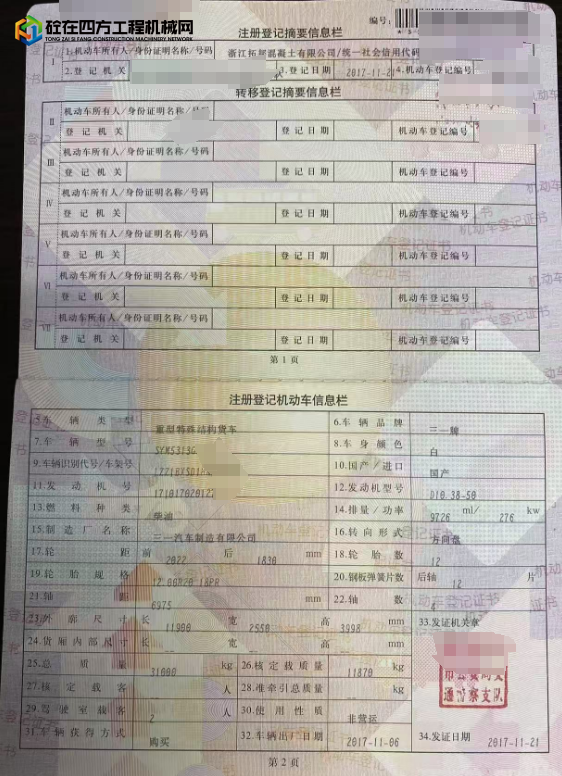 砼在四方工程机械网
TONG ZAI SI FANG CONSTRUCTION MACHINERY NETWORK
注册登记摘要信息栏
编号:
I
1.机动车所有人/身份证明名称/号码
混凝土有限公司/统一社会信用代码
2.登记机关
3.登记日期 2017-11-21 4.机动车登记编号
转移登记摘要信息栏
II
机动车所有人/身份证明名称/号码
登记机关 登记日期 机动车登记编号
III
机动车所有人/身份证明名称/号码
登记机关 登记日期 机动车登记编号
IV
机动车所有人/身份证明名称/号码
登记机关 登记日期 机动车登记编号
V
机动车所有人/身份证明名称/号码
登记机关 登记日期 机动车登记编号
VI
机动车所有人/身份证明名称/号码
登记机关 登记日期 机动车登记编号
VII
机动车所有人/身份证明名称/号码
登记机关 登记日期 机动车登记编号
第1页
注册登记机动车信息栏
5.车辆类型 重型特殊结构货车 6.车辆品牌 三一牌
7.车辆型号 SYM5313G 8.车身颜色 白
9.车辆识别代号/车架号 10.国产/进口 国产
11.发动机号 12.发动机型号 D10.38-50
13.燃料种类 柴油 14.排量/功率 9726 ml/ 276 kw
15.制造厂名称 三一汽车制造有限公司 16.转向形式 方向盘
17.轮距 前 2022 后 1830 mm 18.轮胎数 12
19.轮胎规格 12.00R20 18PR 20.钢板弹簧片数 后轴 12 片
21.轴距 6975 mm 22.轴数 4
23.外廓尺寸 长 11900 宽 2550 高 3998 mm 33.发证机关章
24.货厢内部尺寸 长 -- 宽 -- 高 -- mm
25.总质量 31000 kg 26.核定载质量 11870 kg
27.核定载客 -- 人 28.准牵引总质量 -- kg
29.驾驶室载客 2 人 30.使用性质 非营运
31.车辆获得方式 购买 32.车辆出厂日期 2017-11-06 34.发证日期 2017-11-21
第2页